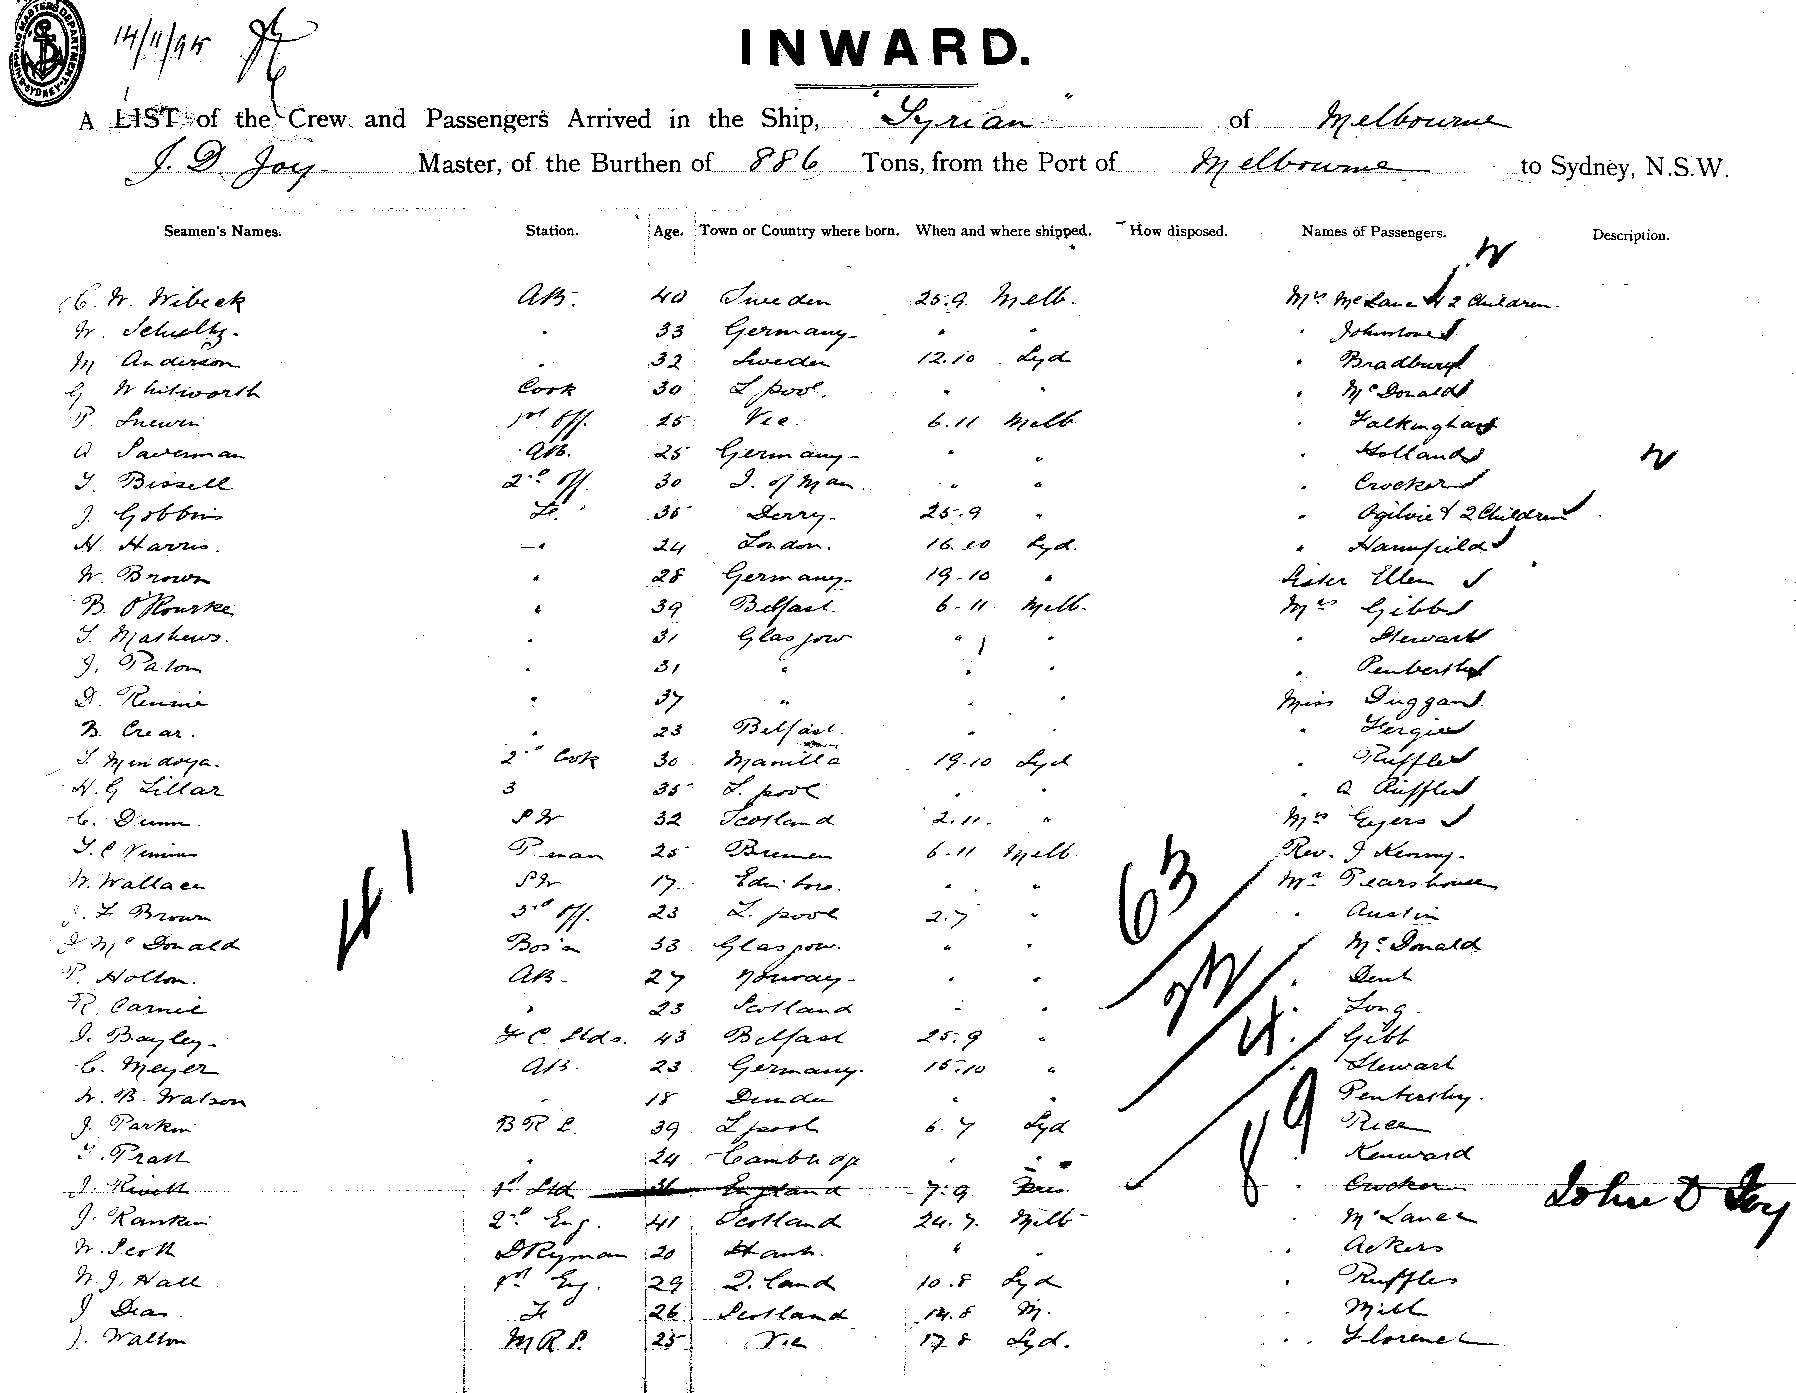 SHIPPING MASTERS DEPARTMENT SYDNEY
14/11/95
INWARD.
A LIST of the Crew and Passengers Arrived in the Ship, "Syrian" of Melbourne
J. D. Joy Master, of the Burthen of 886 Tons, from the Port of Melbourne to Sydney, N.S.W.
Seamen's Names. Station. Age. Town or Country where born. When and where shipped. How disposed. Names of Passengers. Description.
C. W. Wibeck AB. 40 Sweden 25.9 Melb. Mrs McLane & 2 Children
W. Schultz. " 33 Germany " " " Johnstone
M Anderson " 32 Sweden 12.10 Syd " Bradbury
G Whitworth Cook 30 L pool. " " " McDonald
P. 1st Off. 25 Vic. 6.11 Melb " Falkingham
A Saverman AB. 25 Germany " " " Holland
T. Bissell 2nd Off. 30 I. of Man " " " Crocker
J. Gobbins Fe. 35 Derry 25.9 " " Ogilvie & 2 Children
H. Harris. " 24 London. 16.10 Syd. "
W. Brown " 28 Germany 19-10 " Sister Ellen
B. O'Rourke " 39 Belfast 6-11 Melb. Mrs Gibb
T. Mathews. " 31 Glasgow " " " Stewart
J. Paton " 31 " " " " Penberthy
D. Rennie " 37 " " " Miss Duggan
B. Crear. " 23 Belfast " " "
T. Mendoza. 2nd Cook 30 Manilla 19-10 Syd " Ruffles
H. G Lillar 3 35 L. pool " " " A Ruffles
C. Dunn. SW 32 Scotland 2.11. " Mrs Geyers
T. C 25 Bremen 6-11 Melb Rev. J Kenny.
W. Wallace SW 17 Edinboro. " " Mr Pearshouse
J. F Brown 3rd Off. 23 L. pool 2.7 " " Austin
D McDonald Bos'n 33 Glasgow. " " " McDonald
P. Holton. AB. 27 Norway " " " Dent
R. Carnie " 23 Scotland " " " Long.
J. Bayley F C Stds. 43 Belfast 25.9 " " Gibb
C. Meyer AB. 23 Germany. 15.10 " " Stewart
W. B. Watson " 18 Dundee " " " Penberthy.
J. Parkin B R S. 39 L pool 6.7 Syd " Rice
T. Pratt " 24 Cambridge " " " Kenward
J. Rivett 1st Std 36 England 7.9 " Crocker
J. Rankin 2nd Eng. 41 Scotland 24.7 Melb " McLane
W. Scott 20 Hants. " " " Ackers
W. J. Hall 1st Eng. 29 Q. land 10.8 Syd " Ruffles
J Dias Fe 26 Scotland 14.8 M. " Mill
J. Walton M R S. 25 Vic 17.8 Syd. " Florence
41
63
4.
89
John D Joy